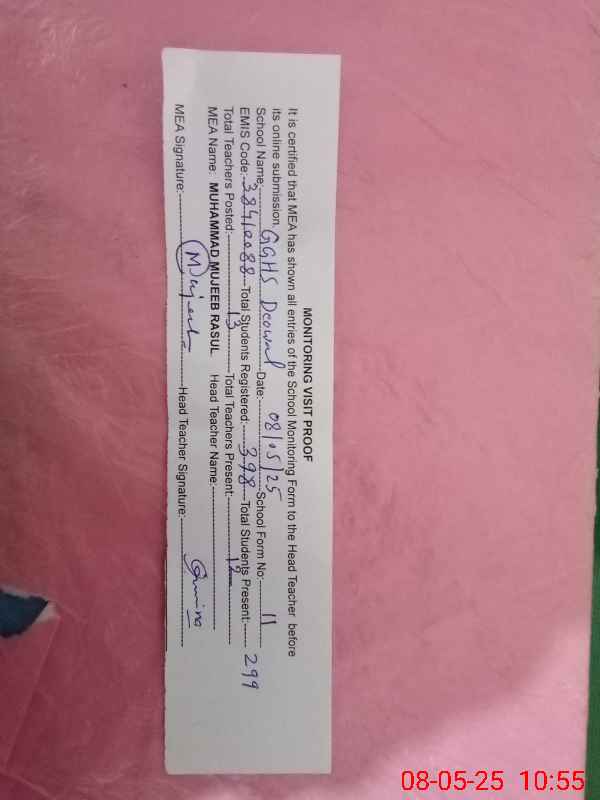 MONITORING VISIT PROOF
It is certified that MEA has shown all entries of the School Monitoring Form to the Head Teacher before
its online submission.
School Name: GGHS Deowal Date: 08/05/25 School Form No: 11
EMIS Code: 38410088 Total Students Registered: 398 Total Students Present: 299
Total Teachers Posted: 13 Total Teachers Present: 12
MEA Name: MUHAMMAD MUJEEB RASUL Head Teacher Name:
MEA Signature: Mujeeb Head Teacher Signature: Amina
08-05-25 10:55